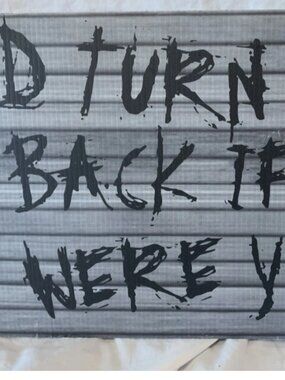 D TURN
BACK IF
WERE Y